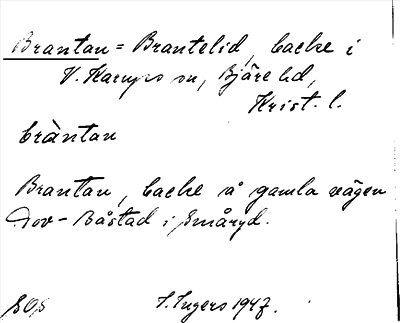 Brantan = Brantelid, backe i
V. Karups sn, Bjäre hd,
Krist. l.
bràntan
Brantan, backe å gamla vägen
Dov-Båstad i Småryd.
SOS
I. Ingers 1947.